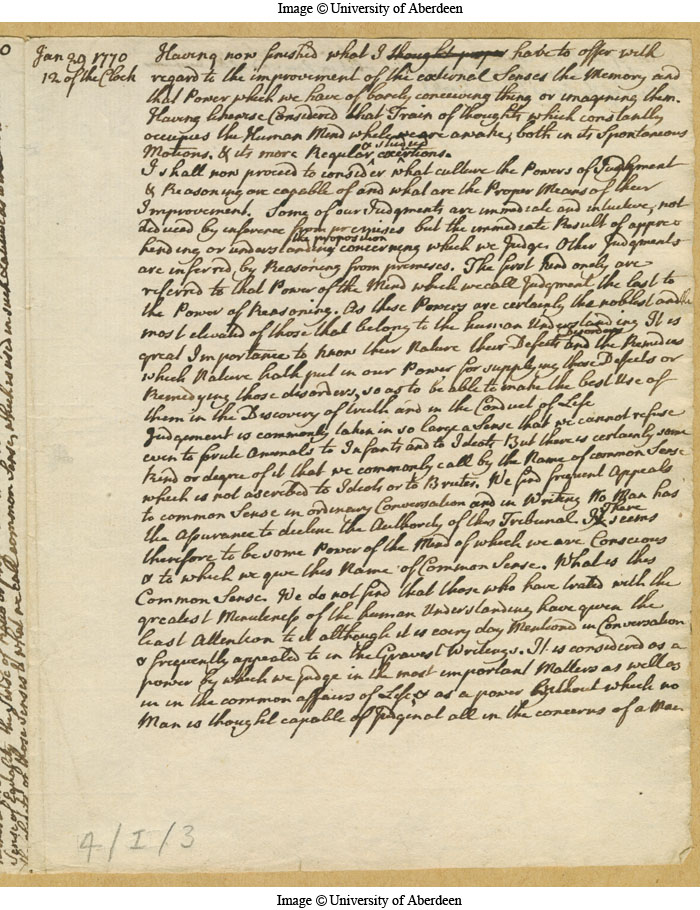 Image © University of Aberdeen
Jan 29 1770
12 of the Clock
Having now finished what I thought proper have to offer with
regard to the improvement of the external Senses the Memory and
that Power which we have of barely conceiving thing or imagining them.
Having likewise Considered that Train of thoughts which constantly
occupies the Human Mind while we are awake, both in its Spontaneous
Motions. & its more Regular & studied exertions.
I shall now proceed to consider what culture the Powers of Judgment
& Reasoning are capable of and what are the Proper Means of their
Improvement. Some of our Judgments are immediate and intuitive, not
deduced by inference from premises but the immediate Result of appre=
hending or understanding the proposition concerning which we Judge. Other Judgments
are inferred by Reasoning from premises. The first kind onely are
referred to that Power of the Mind which we call Judgment the last to
the Power of Reasoning. As these Powers are certainly the noblest and the
most elevated of those that belong to the human Understanding It is
great Importance to know their Nature their Defects Disorders and the Remedies
which Nature hath put in our Power for supplying those Defects or
Remedying those disorders, so as to be able to make the best Use of
them in the Discovery of truth and in the Conduct of Life
Judgment is commonly taken in so large a Sense that we cannot refuse
even to brute Animals to Infants and to Ideots But there is certainly some
kind or degree of it that we commonly call by the Name of common Sense
which is not ascribed to Ideots or to Brutes. We find frequent Appeals
to common Sense in ordinary Conversation and in Writing No Man has
the Assurance to decline the Authority of this Tribunal. There seems
therefore to be some Power of the Mind of which we are Conscious
& to which we give this Name of Common Sense. What is this
Common Sense. We do not find that those who have trated with the
greatest Minuteness of the human Understanding have given the
least Attention to it although it is every day Mentiond in Conversation
& frequently appealed to in the Gravest Writings. It is considered as a
power by which we judge in the most important Matters as well as
in in the common affairs of Life, & as a power without which no
Man is thought capable of Judgin at all in the concerns of a Man
4/I/3
Sense of Equality
of those Senses is what we call common Sense, which is used in such
Image © University of Aberdeen